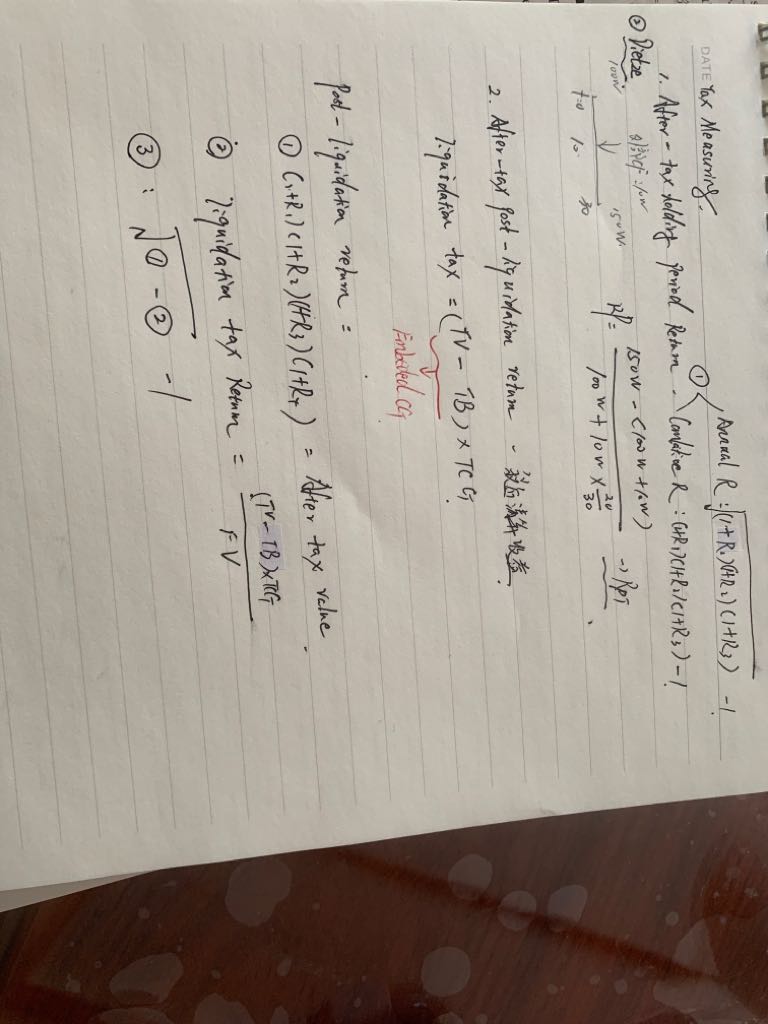 DATE Tax Measuring.
Annual R : √(1+R₁)(1+R₂)(1+R₃) -1
1. After-tax holding Period Return - ① Cumlative R : (1+R₁)(1+R₂)(1+R₃) -1
② Dietze
100W 150W.
t=0 10 30
RP = (150W - (100W + 10W)) / (100W + 10W × 20/30) →
2. After-tax post-liquidation return - 税后清算收益.
liquidation tax = (TV - TB) × TCG
Embeded CG
Post-liquidation return =
① (1+R₁)(1+R₂)(1+R₃)(1+R₄) = After tax value.
② liquidation tax Return = (TV-TB)×TCG / FV
③ : √①-② -1